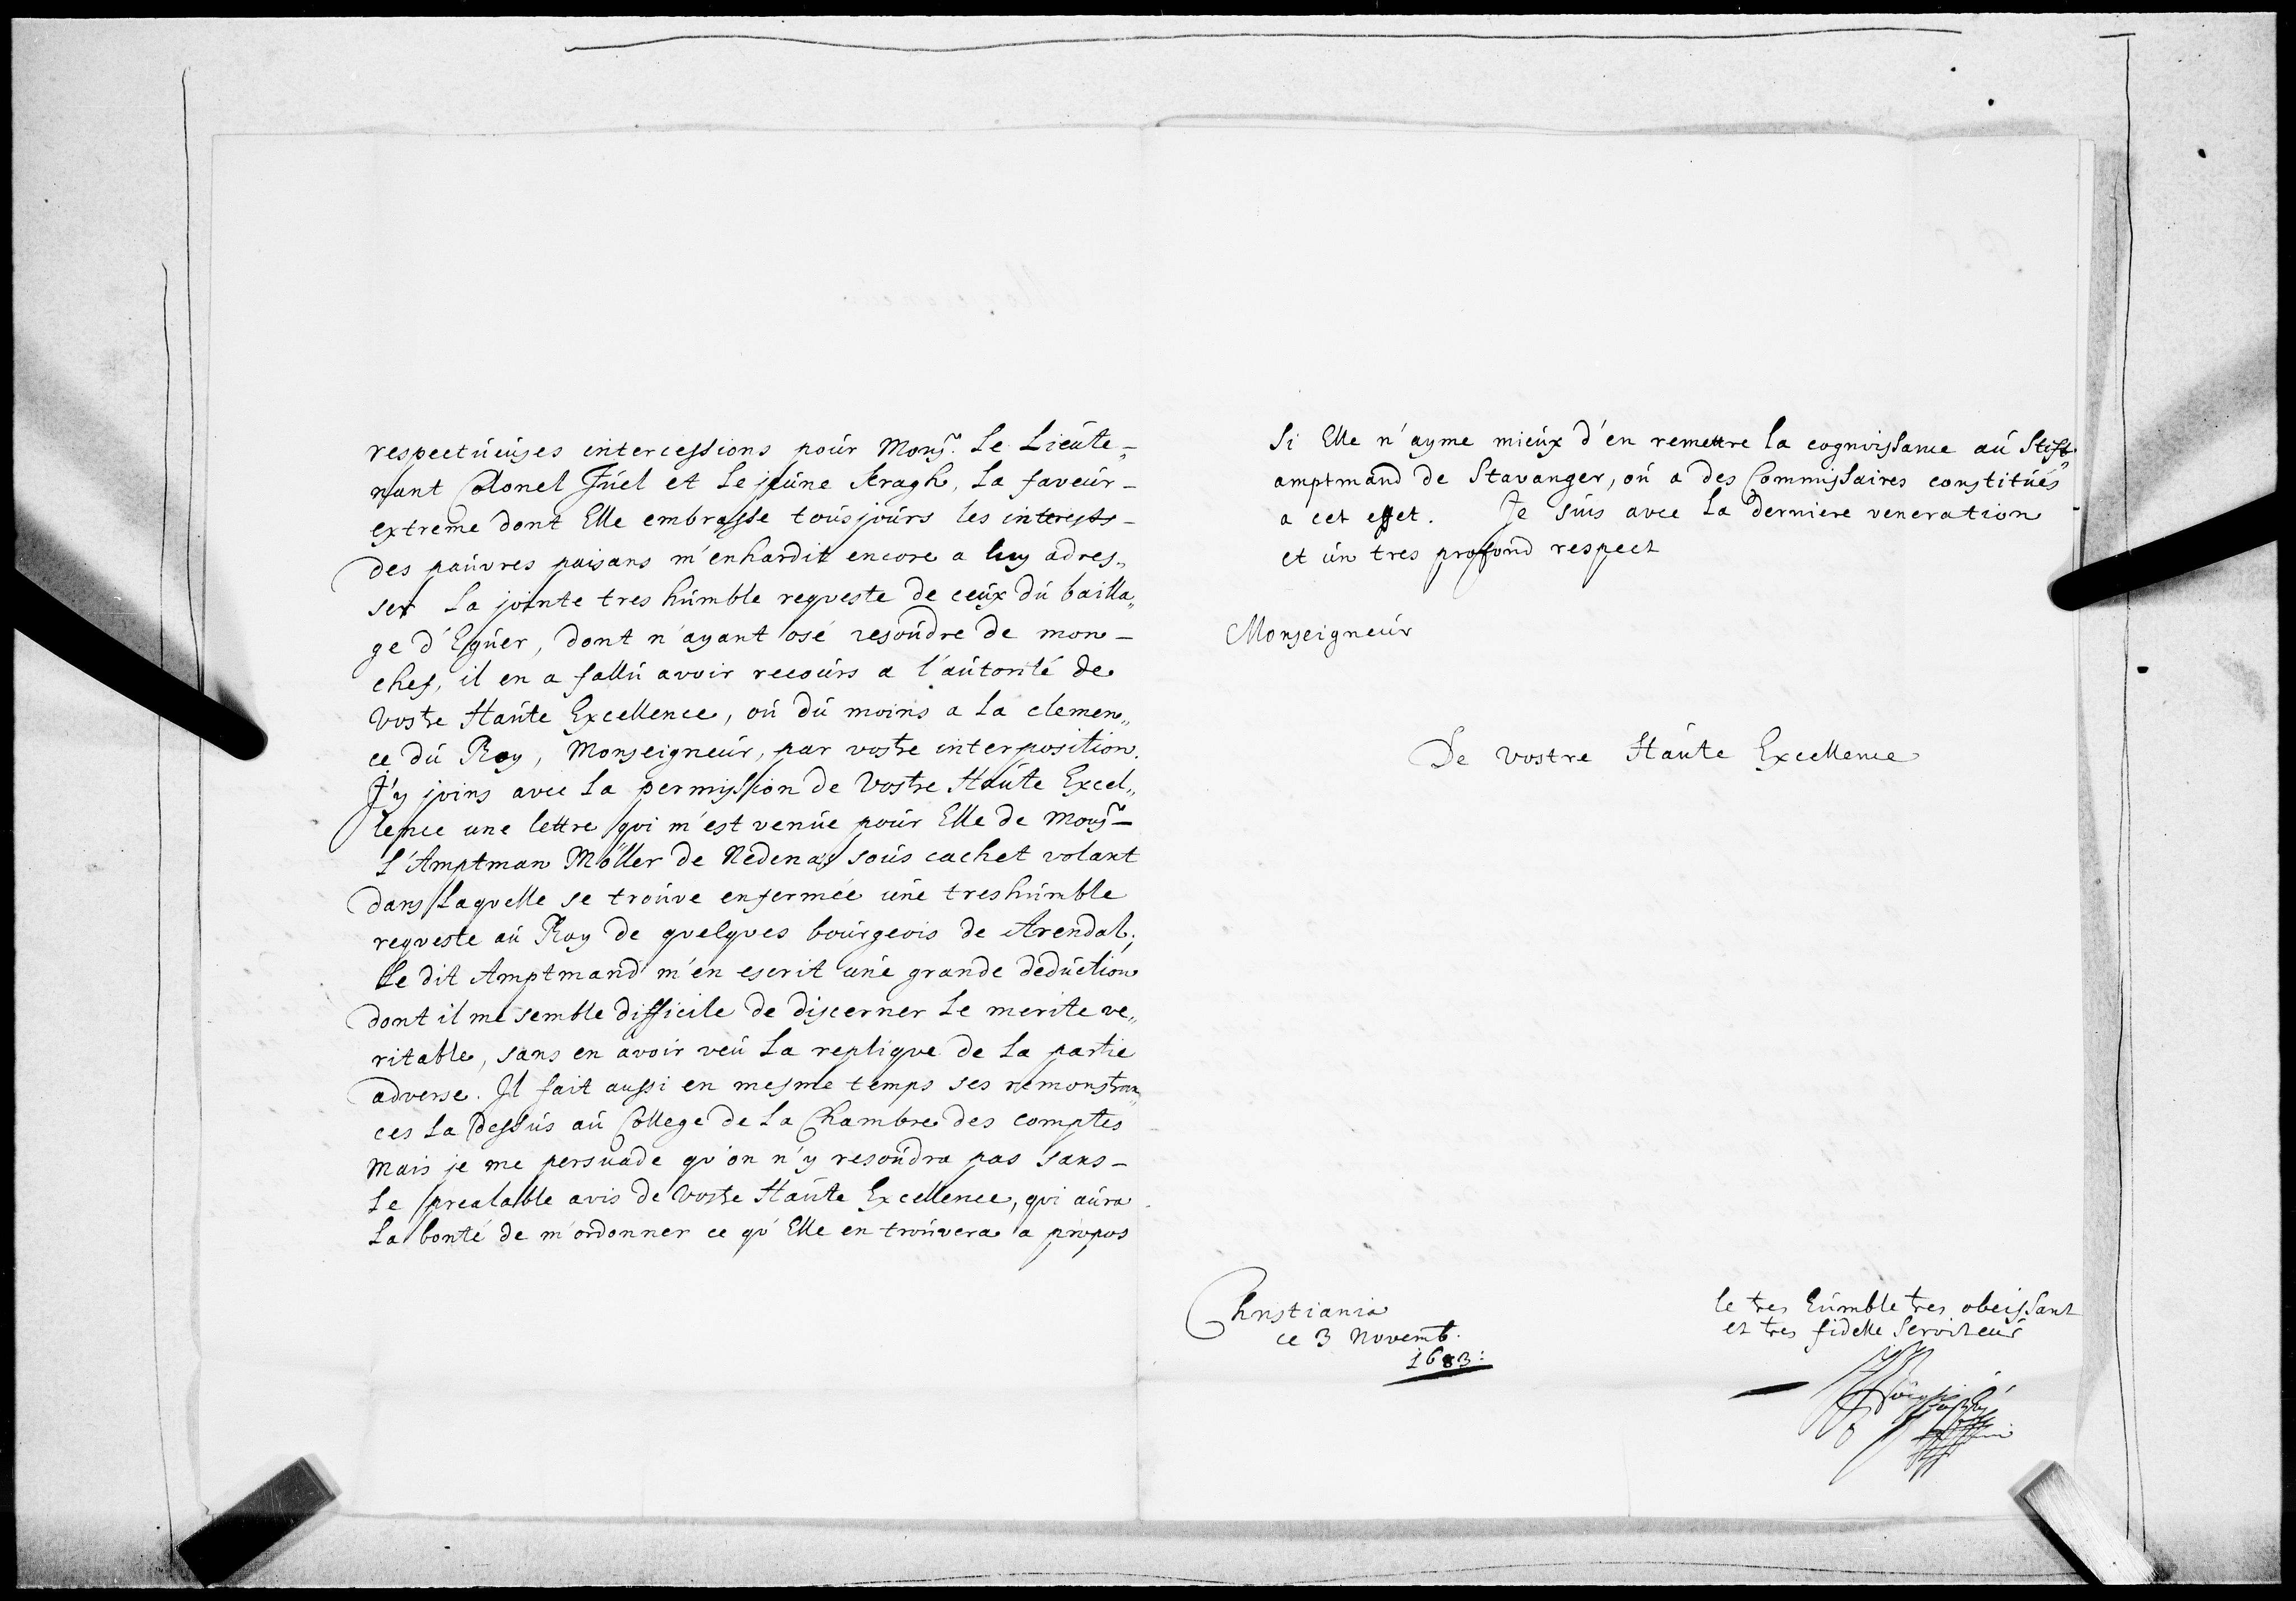 respectueuses intercessions pour Monsr. Le Lieute-
nant Colonel Juel et Le jeune Kragh, La faveur-
extreme dont Elle embrasse tousjours les interests-
des pauvres paisans m'enhardit encore a luy adres„
ser La jointe tres humble reqveste de ceux du bailla„
ge d'Eguer, dont n'ayant osé resoudre de mon-
chef, il en a fallu avoir recours a l'autorité de
Vostre Haute Excellence, ou du moins a La clemen„
ce du Roy, Monseigneur, par vostre interposition.
J'y joins avec La permission de Vostre Haute Excel„
lence une lettre qvi m'est venue pour Elle de Monsr-
L'Amptman Möller de Nedenas sous cachet volant
dans Laqvelle se trouve enfermée une tres humble
reqveste au Roy de qvelqves bourgeois de Arendal;
Le dit Amptmand m'en escrit une grande deduction
dont il me semble difficile de discerner Le merite ve„
ritable, sans en avoir veu La repliqve de La partie
adverse. Il fait aussi en mesme temps ses remonstran„
ces La dessus au College de La Chambre des comptes
Mais je me persuade qv'on n'y resoudra pas sans-
Le prealable avis de Vostre Haute Excellence, qvi aura
La bonté de m'ordonner ce qv'Elle en trouvera a propos
Si Elle n'ayme mieux d'en remettre La cognoissance au Stift„
amptmand de Stavanger, ou a des Commissaires constitués
a cet effet. Je suis avec La derniere veneration
et un tres profond respect
Monseigneur
De Vostre Haute Excellence
Christiania
ce 3 Novemb.
1683:
le tres humble tres obeissant
et tres fidelle Serviteur